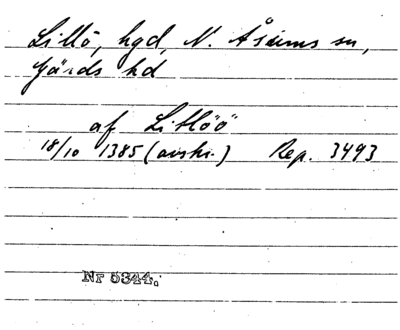 Lillö, hgd, N. Åsums sn,
Gärds hd
af Litlöö"
18/10 1385 (avskr.) Rep. 3493
Nr 5344.